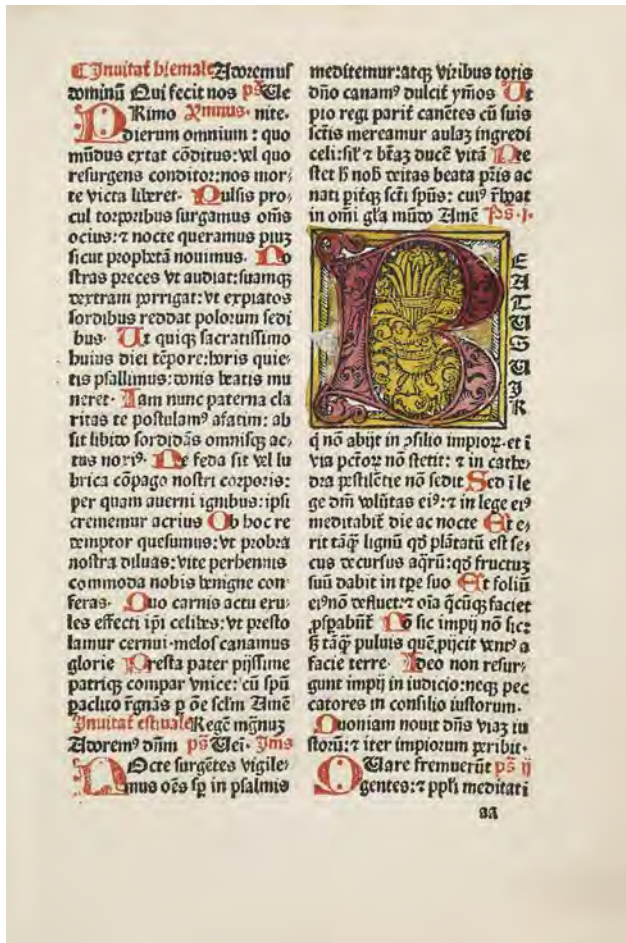 Inuitat̄ hiemale Adoremus
dominū Qui fecit nos p̄s Ue
PRimo Ymnus. nite.
dierum omnium : quo
mūdus extat cōditus: vel quo
resurgens conditor: nos mor⸗
te victa liberet. Pulsis pro⸗
cul torporibus surgamus om̄s
ocius: ⁊ nocte queramus piuꝫ
sicut prophetā nouimus. No
stras preces vt audiat: suamqꝫ
dextram porrigat: vt expiatos
sordibus reddat polorum sedi
bus. Ut quiqꝫ sacratissimo
huius diei tēpore: horis quie⸗
tis psallimus: donis beatis mu
neret. Iam nunc paterna cla
ritas te postulamꝰ afatim: ab
sit libido sordidās omnisqꝫ ac⸗
tus noxiꝰ. Ne feda sit vel lu
brica cōpago nostri corporis:
per quam auerni ignibus: ipsi
crememur acrius Ob hoc re
demptor quesumus: vt probra
nostra diluas: vite perhennis
commoda nobis benigne con
feras. Quo carnis actu exu⸗
les effecti ip̄i celibes: vt presto
lamur cernui. melos canamus
glorie Presta pater pijssime
patriqꝫ compar vnice: cū sp̄u
paclito r̄gnās ꝑ ōe sclm̄ Amē
Inuitat̄ estiuale Regē mḡnuꝫ
Adoremꝰ dn̄m p̄s Uei. Ims
NOcte surgētes vigile⸗
mus oēs sp̄ in psalmis
meditemur: atqꝫ viribus totis
dn̄o canamꝰ dulcit̄ ymos Ut
pio regi parit̄ canētes cū suis
sctis mereamur aulaꝫ ingredi
celi: sil̄ ⁊ bt̄aꝫ ducē vitā Pre
stet h̄ nob̄ deitas beata pr̄is ac
nati pit̄qꝫ scti sp̄us: cuiꝰ r̄boat
in om̄i gl̄a mūdo Amē P̄s .I.
BEATUS UIR
q̄ nō abijt in ꝯsilio impioꝝ. et ī
via pctōꝝ nō stetit: ⁊ in cathe⸗
dra pestilētie nō sedit Sed ī le
ge dn̄i volūtas eiꝰ: ⁊ in lege eiꝰ
meditabit̄ die ac nocte Et e⸗
rit tāqꝫ lignū qd̄ plātatū est se⸗
cus decursus aq̄rū: qd̄ fructuꝫ
suū dabit in tꝑe suo Et foliū
eiꝰ nō defluet: ⁊ oīa q̄cūqꝫ faciet
ꝓsꝑabūt̄ Nō sic impij nō sic:
sꝫ tāqꝫ puluis quē ꝓijcit ventꝰ a
facie terre. Ideo non resur⸗
gunt impij in iudicio: neqꝫ pec
catores in consilio iustorum.
Quoniam nouit dn̄s viaꝫ iu
storū: ⁊ iter impiorum peribit.
QUare fremuerūt p̄s ij
gentes: ⁊ pp̄li meditati
aa